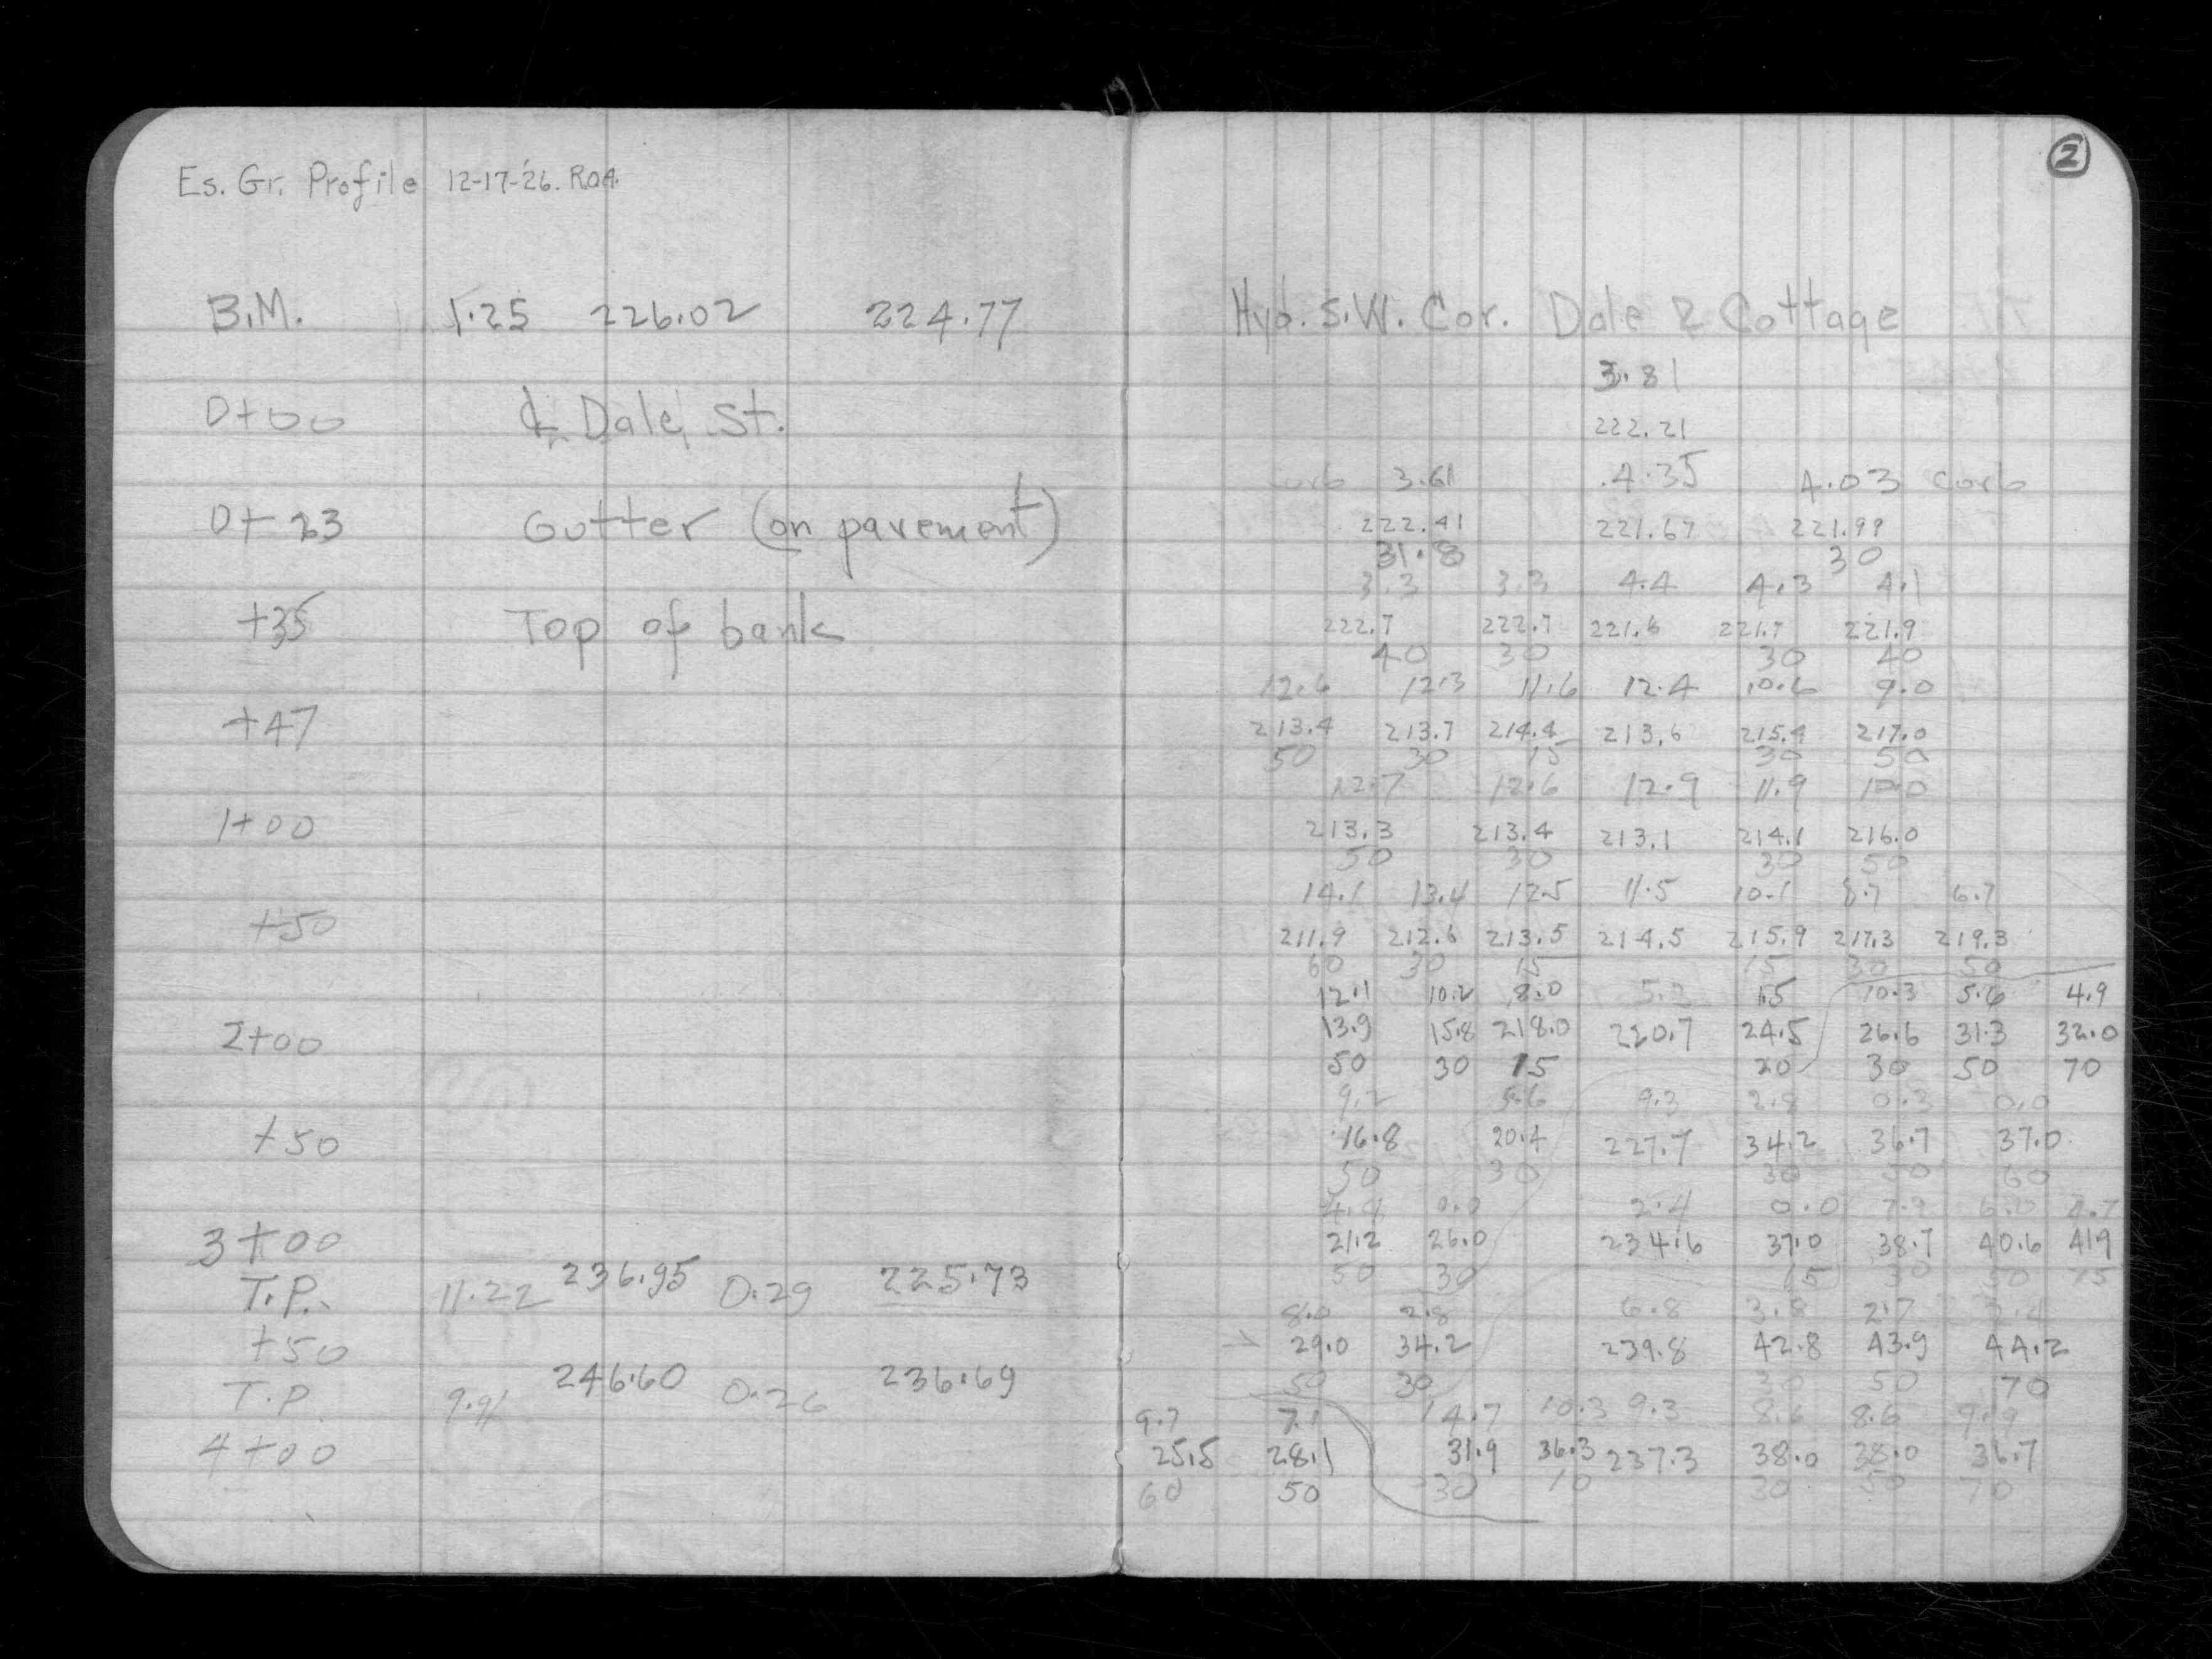 Es. Gr. Profile 12-17-'26. R.O.A.
B.M. 1.25 226.02 224.77
0+00 ℄ Dale St.
0+23 Gutter (on pavement)
+35 Top of bank
+47
1+00
+50
2+00
+50
3+00
T.P. 11.22 236.95 0.29 225.73
+50
T.P. 9.91 246.60 0.26 236.69
4+00
2
Hyd. S.W. Cor. Dale & Cottage
3.81
222.21
3.61 4.35 4.03 Curb
222.41 221.67 221.99
31.8 30
3.3 3.3 4.4 4.3 4.1
222.7 222.7 221.6 221.7 221.9
40 30 30 40
12.6 12.3 11.6 12.4 10.6 9.0
213.4 213.7 214.4 213.6 215.4 217.0
50 30 15 30 50
12.7 12.6 12.9 11.9 10.0
213.3 213.4 213.1 214.1 216.0
50 30 30 50
14.1 13.4 12.5 11.5 10.1 8.7 6.7
211.9 212.6 213.5 214.5 215.9 217.3 219.3
60 30 15 15 30 50
12.1 10.2 8.0 5.3 1.5 10.3 5.6 4.9
13.9 15.8 218.0 220.7 24.5 26.6 31.3 32.0
50 30 15 20 30 50 70
9.2 5.6 9.3 2.8 0.3 0.0
16.8 20.4 227.7 34.2 36.7 37.0
50 30 30 50 60
4.8 0.0 2.4 0.0 7.9 6.0 4.7
21.2 26.0 234.6 37.0 38.7 40.6 41.9
50 30 15 30 50 75
8.0 2.8 6.8 3.8 2.7 2.4
29.0 34.2 239.8 42.8 43.9 44.2
50 30 30 50 70
9.7 7.1 14.7 10.3 9.3 8.6 8.6 9.9
25.5 28.1 31.9 36.3 237.3 38.0 38.0 36.7
60 50 30 10 30 50 70